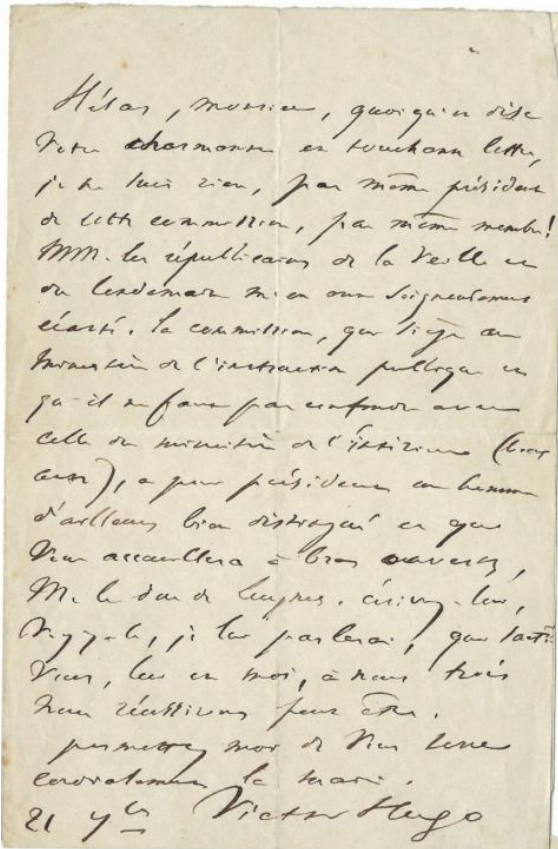 Hélas, monsieur, quoiqu'en dise
votre charmante et touchante lettre,
je ne suis rien, pas même président
de cette commission, pas même membre!
MM. les républicains de la veille et
du lendemain m'en ont soigneusement
écarté. La commission, qui siège au
Ministère de l'instruction publique et
qu'il ne faut pas confondre avec
celle du ministère de l'Intérieur (beaux
arts), a pour président un homme
d'ailleurs bien distingué et qui
vous accueillera à bras ouverts,
M. le duc de Luynes. écrivez-lui,
voyez-le, je lui parlerai,
vous, lui et moi, à nous trois
nous réussirons peut être.
permettez moi de vous serrer
cordialement la main.
21 7bre Victor Hugo